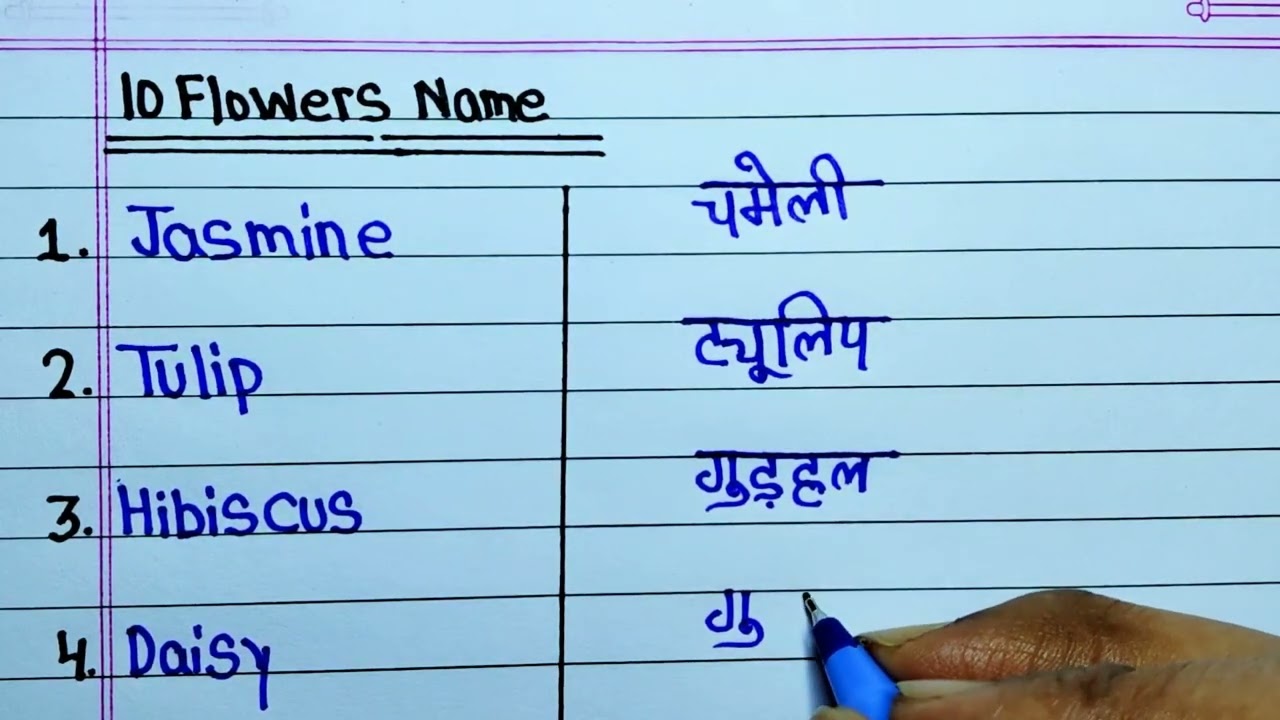 10 Flowers Name
1. Jasmine चमेली
2. Tulip ट्यूलिप
3. Hibiscus गुड़हल
4. Daisy गु